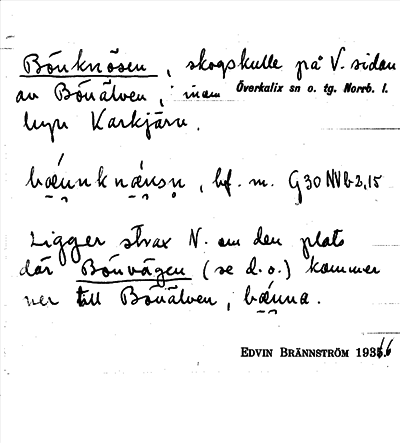 Bönknösen, skogskulle på V. sidan
av Bönälven, inom Överkalix sn o. tg. Norrb. l.
byn Karkjärv.
G30NVb2,15
Ligger strax N. om den plats
där Bönvägen (se d.o.) kommer
ner till Bönälven,
EDVIN BRÄNNSTRÖM 193